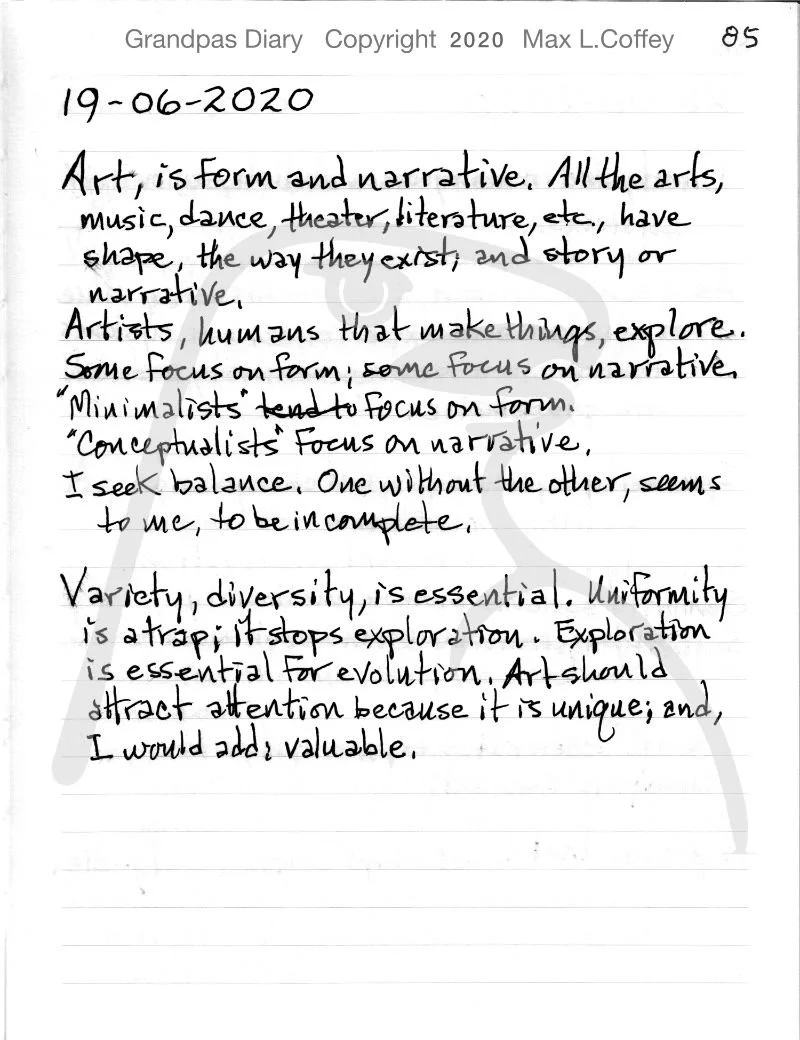 Grandpas Diary Copyright 2020 Max L.Coffey 85
19-06-2020
Art, is form and narrative. All the arts,
music, dance, theater, literature, etc., have
shape, the way they exist; and story or
narrative.
Artists, humans that make things, explore.
Some focus on form; some focus on narrative.
"Minimalists" tend to focus on form.
"Conceptualists" focus on narrative.
I seek balance. One without the other, seems
to me, to be incomplete.
Variety, diversity, is essential. Uniformity
is a trap; it stops exploration. Exploration
is essential for evolution. Art should
attract attention because it is unique; and,
I would add: valuable.